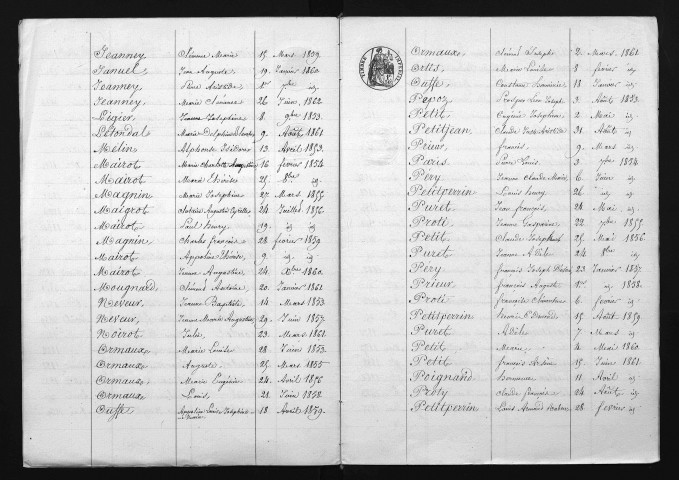 Jeanney Simone Marie 15 Mars 1859
Januel Jean Auguste 19 Janvier 1860
Jeanney Aristide 7bre id
Jeanney Marie 26 Juin 1862
Ligier Jeanne Joséphine 8 9bre 1853
Létondal Marie Delphine 9 Août 1861
Mélin Alphonse Isidore 13 Avril 1853
Mairot Marie Charlotte Augustine 16 fevrier 1854
Mairot Marie Thérèse 25 8bre id
Magnin Marie Joséphine 27 Mars 1855
Maigrot Augustin 24 Juillet 1856
Mairot Paul Henry 19 id id
Magnin Charles françois 28 fevrier 1859
Mairot Appoline Thérèse 9 id id
Mairot Jeanne Augustine 24 Xbre 1860
Mougnard Antoine 20 Janvier 1861
Neveur Jeanne Baptiste 14 Mars 1853
Neveur Jeanne Marie Augustine 29 Juin 1857
Noirot Jules 23 Mars 1861
Ormaux Marie Louise 28 Juin 1853
Ormaux Auguste 25 Mars 1855
Ormaux Marie Eugénie 24 Avril 1856
Ormaux Louis 21 Juin 1858
Cuffe Joséphine 18 Avril 1859
Ormaux Joseph 2 Mars 1861
Marie Louise 8 fevrier id
Cuffe Constant 18 Janvier id
Pepoz Prosper Joseph 3 Août 1853
Petit Eugénie Joséphine 2 Mai id
Petitjean Claude Aristide 31 Août id
Prieur francis 9 Mars id
Paris Pierre Louis 3 7bre 1854
Péry Jeanne Claude Marie 6 Juin id
Petitperrin Louis henry 26 id id
Puret Jean françois 24 Mai id
Proti Jeanne 22 7bre 1855
Petit Claude 25 Mai 1856
Puret Jeanne Adèle 24 8bre id
Péry françois Joseph 23 Janvier 1857
Prieur françois Auguste 1er id 1858
Proti françois 6 fevrier id
Petitperrin 15 Août 1859
Puret Adèle 7 Mars id
Petit Marie 4 Mai 1860
Petit francis 15 Juin 1861
Poignand 11 Avril id
Claude françois 24 Août id
Petitperrin Louis Armand 28 fevrier id